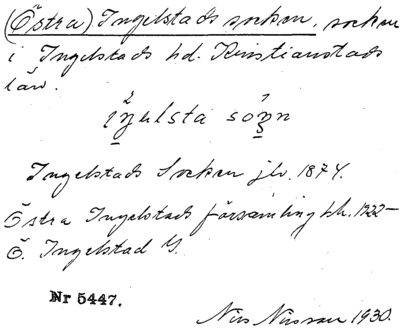 (Östra) Ingelstads socken, socken
i Ingelstads hd. Kristianstads
län.
2 1
iŋelsta soŋn
Ingelstads Socken jlv. 1874.
Östra Ingelstads församling hh. 1922–
Ö. Ingelstad G.
Nr 5447.
Nils Nilsson 1930.